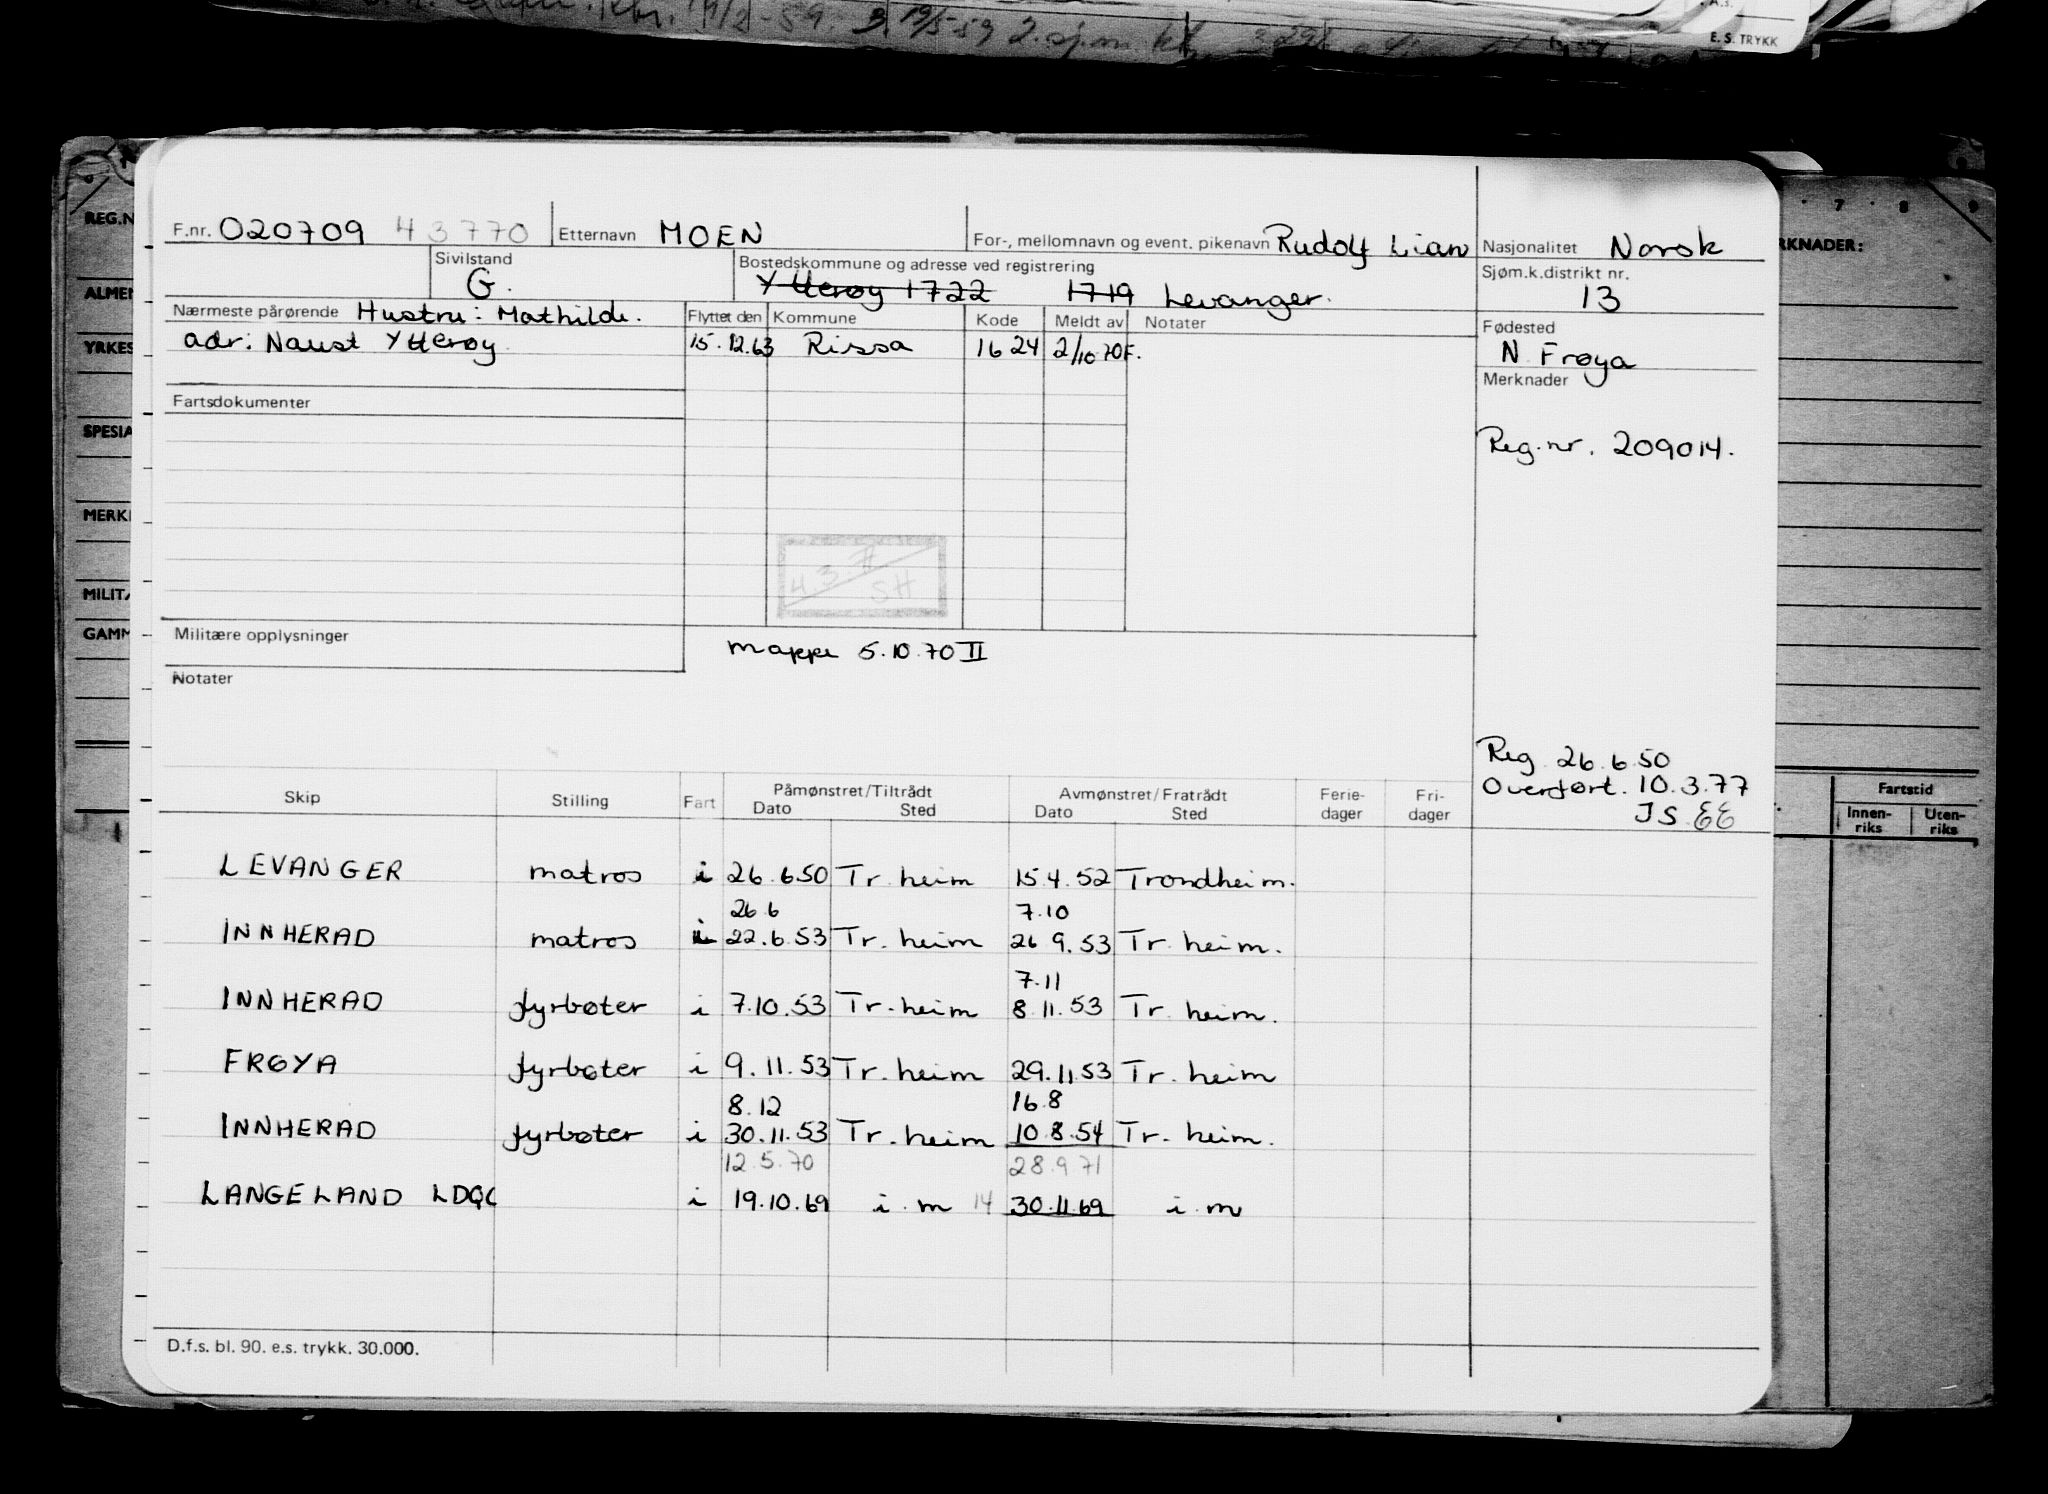 E. S. TRYKK
REG.N
F.nr. 020709 43770 Etternavn MOEN For-, mellomnavn og event. pikenavn Rudolf Lian Nasjonalitet Norsk
Sivilstand G.
Bostedskommune og adresse ved registrering
Ytterøy 1722 1719 Levanger.
Sjøm.k.distrikt nr. 13
Nærmeste pårørende Hustru: Mathilde.
adr: Naust Ytterøy
Flyttet den Kommune Kode Meldt av Notater
15.12.63 Rissa 1624 2/10 70 F.
Fødested
N Frøya
Merknader
Reg.nr. 209014.
Fartsdokumenter
4.3.77
SH
Militære opplysninger
mappe 5.10.70 II
Notater
Reg 26.6.50
Overført. 10.3.77
JS EE
Skip Stilling Fart Påmønstret/Tiltrådt Dato Sted Avmønstret/Fratrådt Dato Sted Ferie-dager Fri-dager
LEVANGER matros i 26.6.50 Tr.heim 15.4.52 Trondheim.
26.6 7.10
INNHERAD matros i 22.6.53 Tr.heim 26 9.53 Tr.heim.
7.11
INNHERAD fyrbøter i 7.10.53 Tr.heim 8.11.53 Tr.heim.
FRØYA fyrbøter i 9.11.53 Tr.heim 29.11.53 Tr.heim
8.12 16.8
INNHERAD fyrbøter i 30.11.53 Tr.heim 10.8.54 Tr.heim.
12.5.70 28.9.71
LANGELAND LDQC i 19.10.69 i m 14 30.11.69 i m
D.f.s. bl. 90. e.s. trykk. 30.000.
ALMEN
YRKES
SPESIA
MERK
MILITÆ
GAMM
7 8 9
RKNADER:
Fartstid
Innen-riks Uten-riks